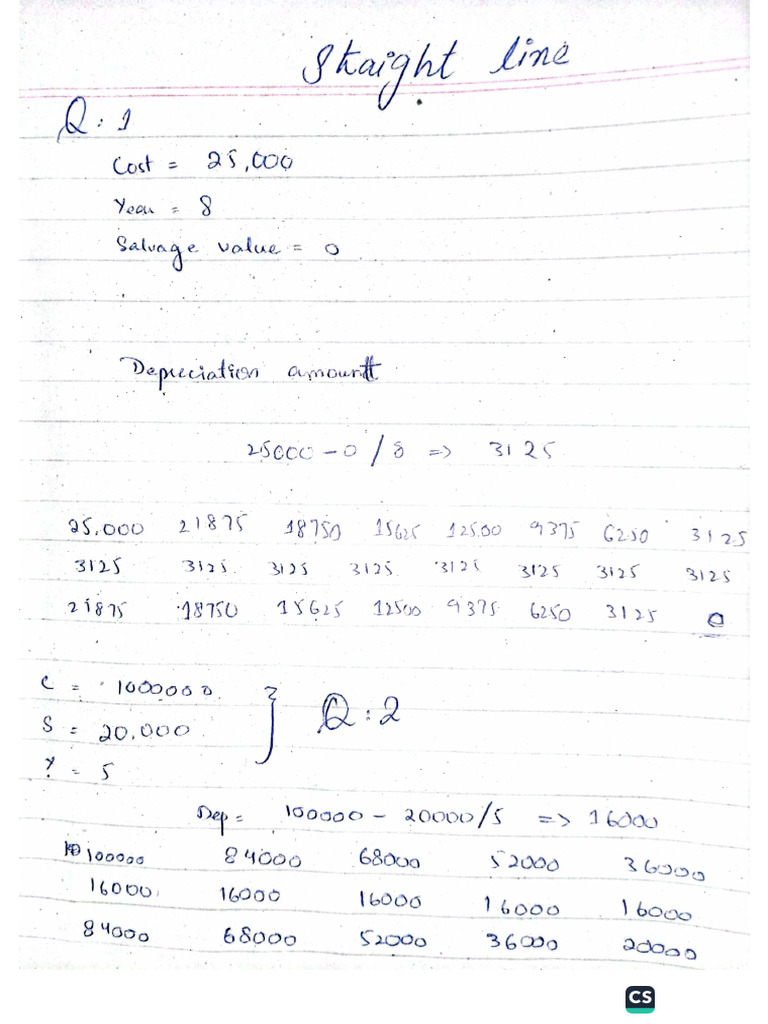 Straight line
Q : 1
Cost = 25,000
Year = 8
Salvage value = 0
Depreciation amount
25000 - 0 / 8 => 3125
25,000 21875 18750 15625 12500 9375 6250 3125
3125 3125 3125 3125 3125 3125 3125 3125
21875 18750 15625 12500 9375 6250 3125 0
C = 1000000
S = 20,000 } Q : 2
Y = 5
Dep = 100000 - 20000/5 => 16000
100000 84000 68000 52000 36000
16000 16000 16000 16000 16000
84000 68000 52000 36000 20000
CS